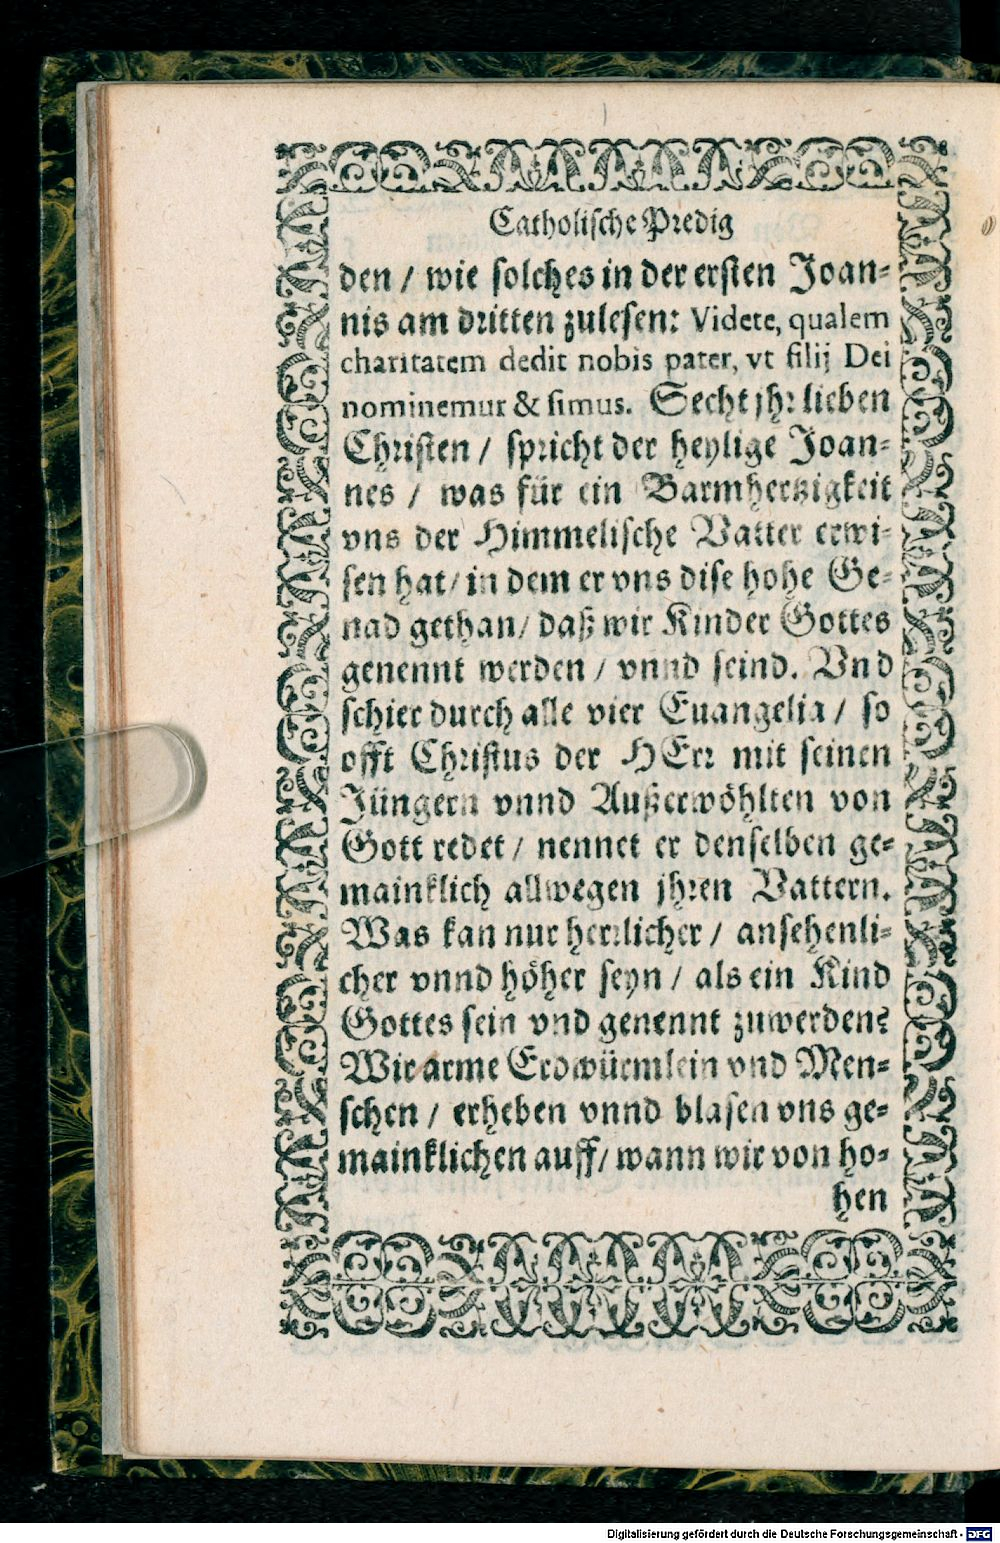 Catholische Predig
den / wie solches in der ersten Joan-
nis am dritten zulesen: Videte, qualem
charitatem dedit nobis pater, vt filij Dei
nominemur & simus. Secht jhr lieben
Christen / spricht der heylige Joan-
nes / was für ein Barmhertzigkeit
vns der Himmelische Vatter erwi-
sen hat / in dem er vns dise hohe Ge-
nad gethan / daß wir Kinder Gottes
genennt werden / vnnd seind. Vnd
schier durch alle vier Euangelia / so
offt Christus der HErr mit seinen
Jüngern vnnd Außerwöhlten von
Gott redet / nennet er denselben ge-
mainklich allwegen jhren Vattern.
Was kan nur herrlicher / ansehenli-
cher vnnd höher seyn / als ein Kind
Gottes sein vnd genennt zuwerden?
Wir arme Erdwürmlein vnd Men-
schen / erheben vnnd blasen vns ge-
mainklichen auff / wann wir von ho-
hen
Digitalisierung gefördert durch die Deutsche Forschungsgemeinschaft - DFG